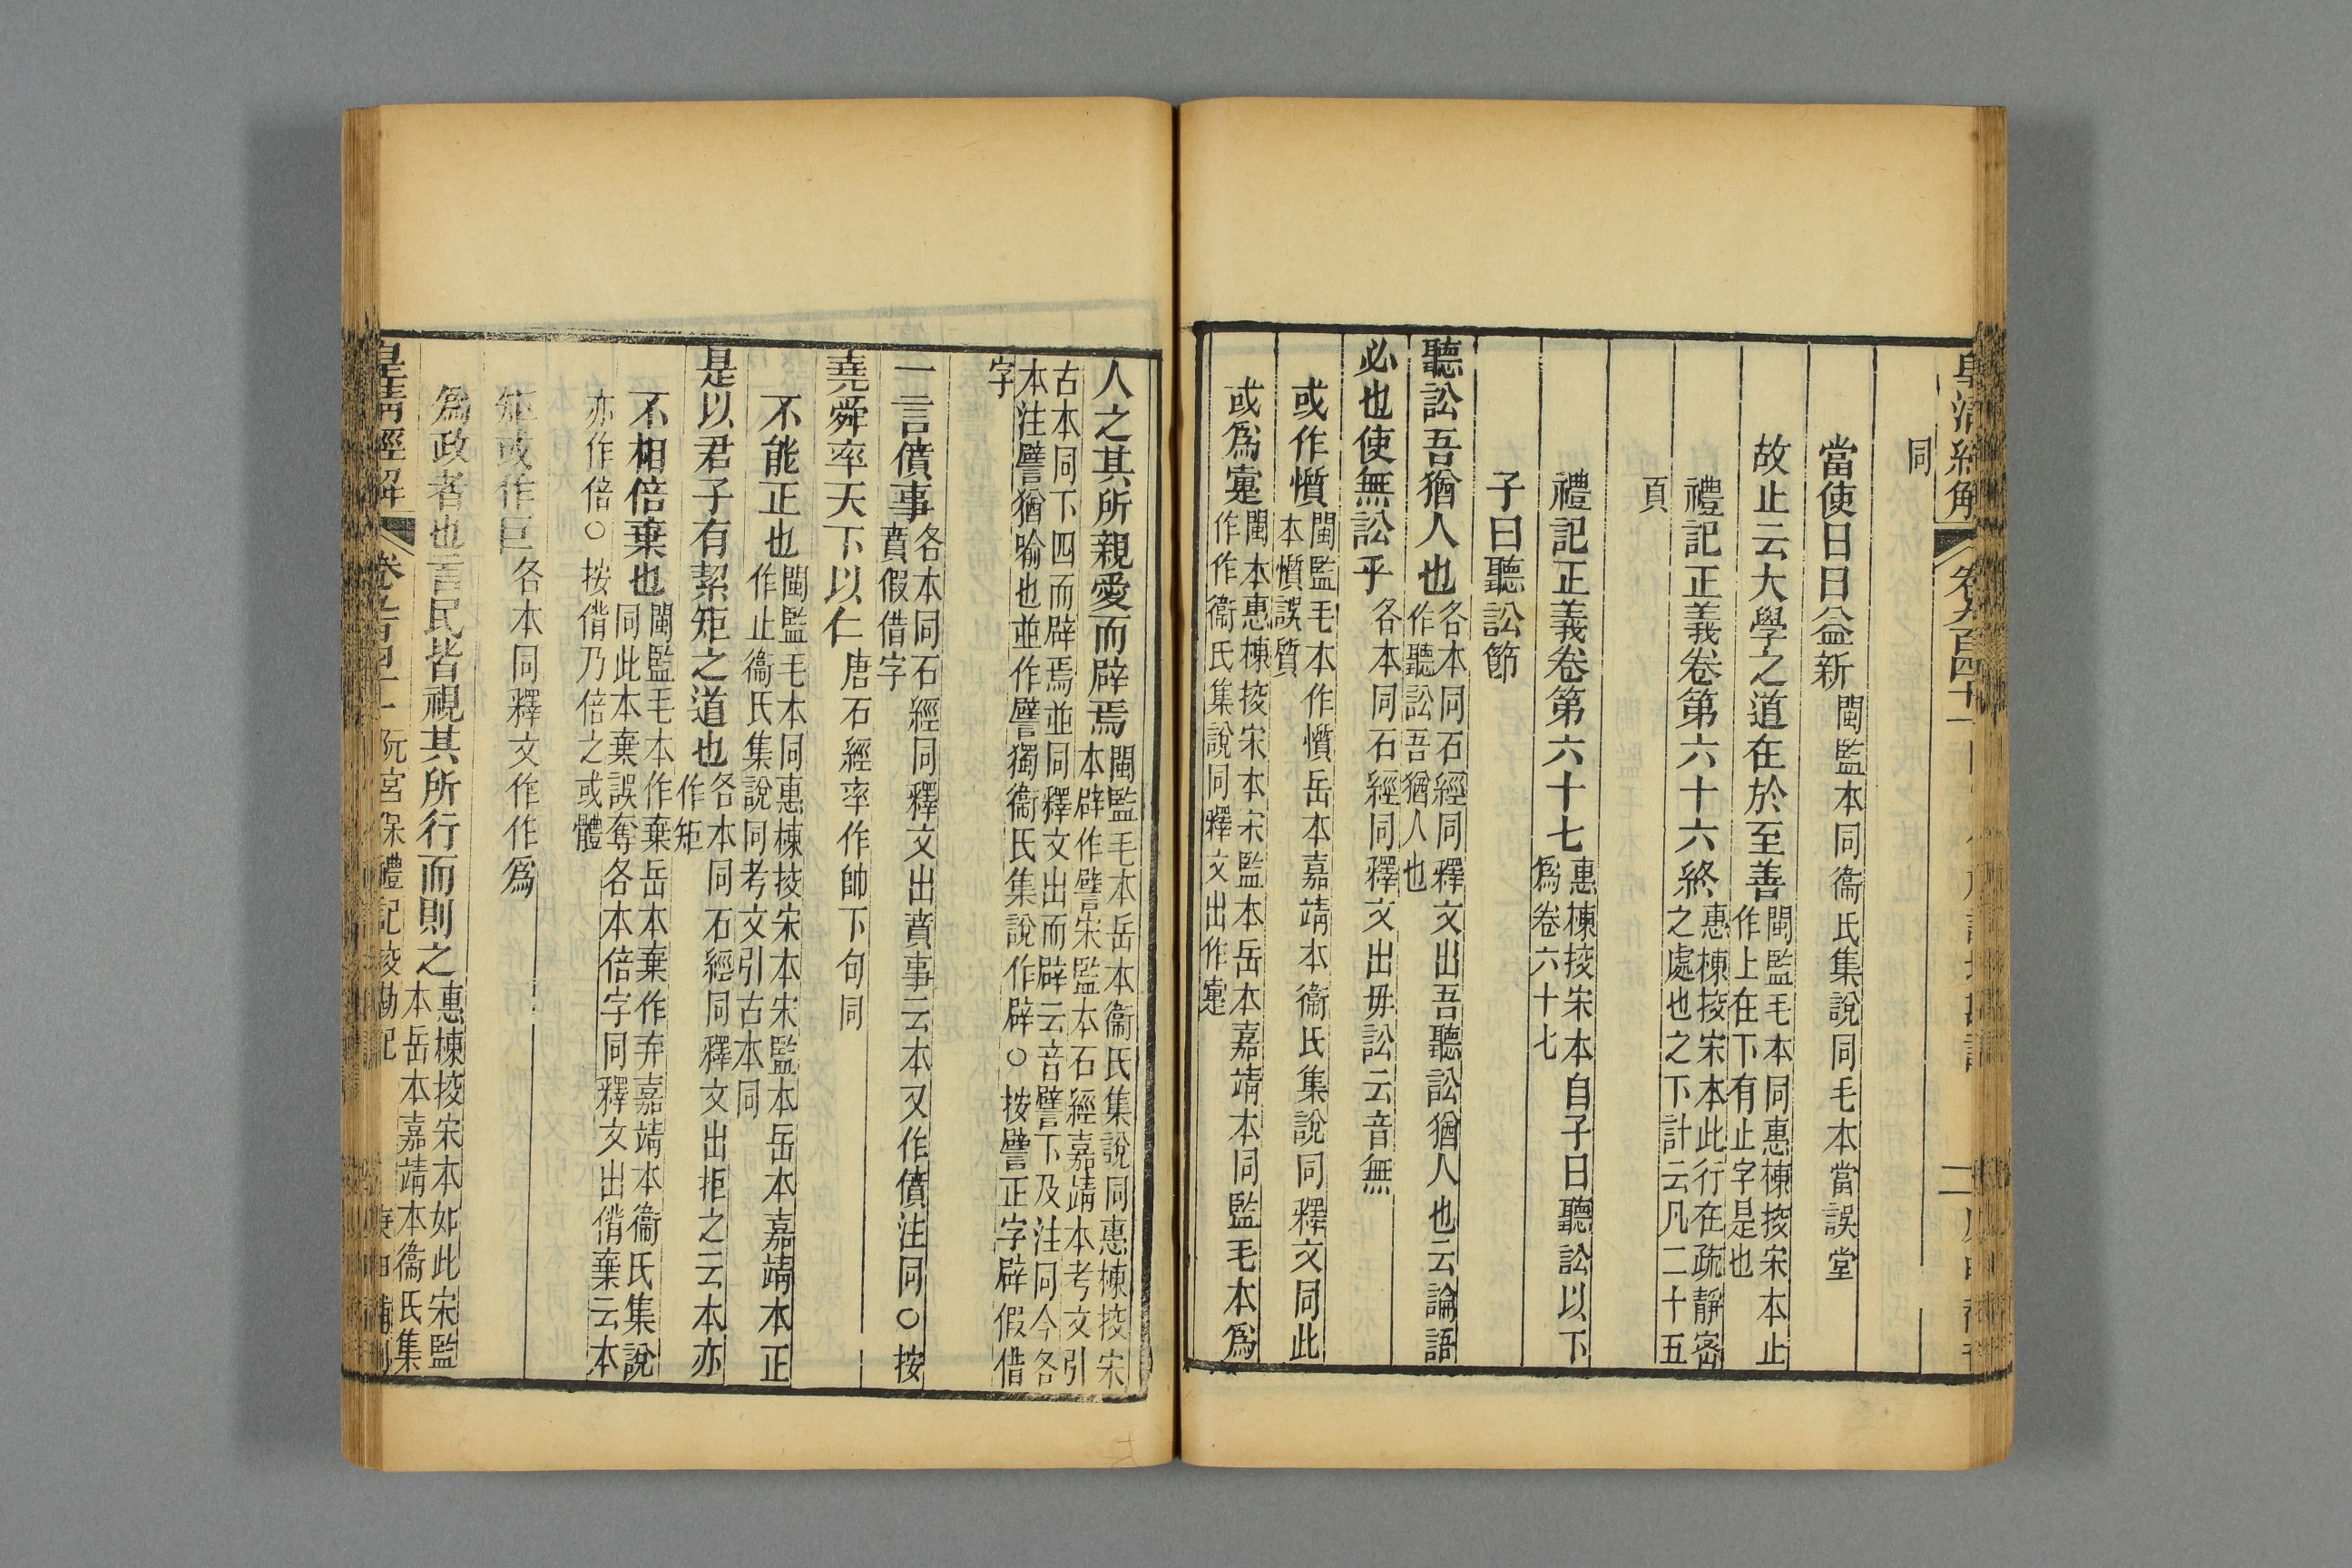 同
當使日日益新閩監本同衞氏集說同毛本當誤堂
故止云大學之道在於至善閩監毛本同惠棟挍宋本止作上在下有止字是也
禮記正義卷第六十六終惠棟挍宋本此行在疏靜密之處也之下計云凡二十五
頁
禮記正義卷第六十七惠棟挍宋本自子曰聽訟以下爲卷六十七
子曰聽訟節
聽訟吾猶人也各本同石經同釋文出吾聽訟猶人也云論語作聽訟吾猶人也
必也使無訟乎各本同石經同釋文出毋訟云音無
或作懫閩監毛本作懫岳本嘉靖本衞氏集說同釋文同此本懫誤質
或爲疐閩本惠棟挍宋本宋監本岳本嘉靖本同監毛本爲作作衞氏集說同釋文出作疐
人之其所親愛而辟焉閩監毛本岳本衞氏集說同惠棟挍宋本辟作譬宋監本石經嘉靖本考文引
古本同下四而辟焉並同釋文出而辟云音譬下及注同今各本注譬猶喻也並作譬獨衞氏集說作辟○按譬正字辟假借
字
一言僨事各本同石經同釋文出賁事云本又作僨注同○按賁假借字
堯舜率天下以仁唐石經率作帥下句同
不能正也閩監毛本同惠棟挍宋本宋監本岳本嘉靖本正作止衞氏集說同考文引古本同
是以君子有絜矩之道也各本同石經同釋文出拒之云本亦作矩
不相倍棄也閩監毛本作棄岳本棄作弃嘉靖本衞氏集說同此本棄誤奪各本倍字同釋文出偝棄云本
亦作倍○按偝乃倍之或體
矩或作巨各本同釋文作作爲
爲政者也言民皆視其所行而則之惠棟挍宋本如此宋監本岳本嘉靖本衞氏集
皇清經解 阮宮保禮記挍勘記